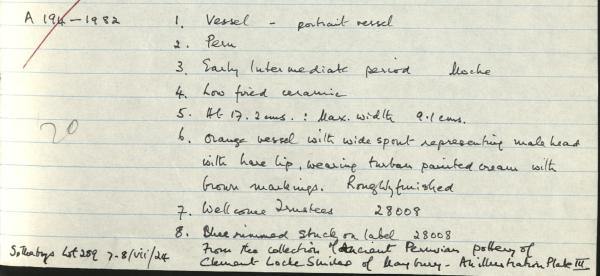 A 194-1982
1. Vessel - portrait vessel
2. Peru
3. Early Intermediate period Moche
4. Low fired ceramic
20
5. Ht 17.2cms. : Max. width 9.1cms.
6. Orange vessel with wide spout representing male head
with hare lip, wearing turban painted cream with
brown markings. Roughly finished
7. Wellcome Trustees 28008
8. Blue rimmed stuck on label 28008
Sothebys Lot 289 7-8/vii/24
From the collection of Ancient Peruvian pottery of
Clement Locke Smiles of - An illustration Plate III